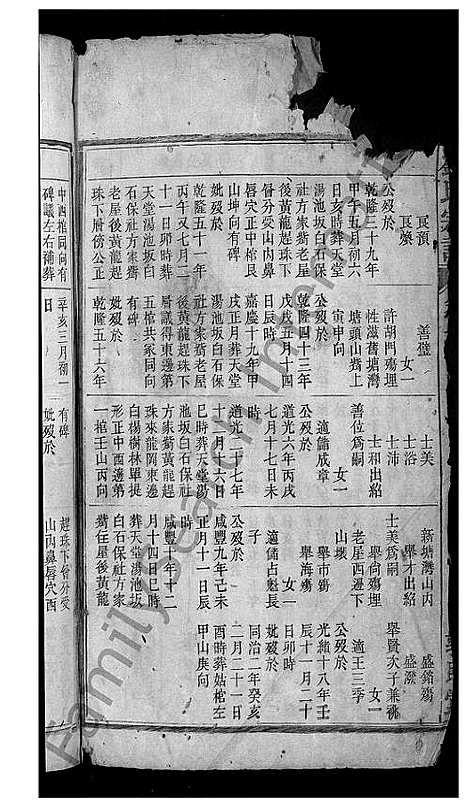 良預
公歿於
乾隆三十九年
甲午五月初六
日亥時葬天堂
湯池坂白石保
社方家蒭老屋
後黃龍趕珠下
倍分受山內鼻
唇穴正中棺艮
山坤向有碑
妣歿於
乾隆五十一年
丙午又七月二
十一日卯時葬
天堂湯池坂白
石保社方家蒭
老屋後黃龍趕
珠下厝傍公正
善璧
女一
許胡門殤埋
性滋舊塘灣
塘頭山嘴上
寅申向
公歿於
乾隆四十三年
戊戌五月十四
日辰時
嘉慶十九年甲
戌正月葬天堂
湯池坂白石保
社方家蒭老屋
後黃龍趕珠下
厝議得東邊第
五棺共家同向
有碑
妣歿於
乾隆五十六年
士美
士浴
士沛
士和出紹
女一
善位爲嗣
適儲成章
公歿於
道光六年丙戌
七月十七日未
時
道光二十七年
十一月十六日
巳時葬天堂湯
池坂白石保社
方家蒭黃龍趕
珠來龍岡東邊
白楊樹林單提
形正中西邊第
一棺壬山丙向
新塘灣山內
舉才出紹
士美爲嗣
舉倚殤埋
老屋西邊下
山塝
舉市殤
舉海殤
女一
適儲占魁長
子
公歿於
咸豐九年己未
正月十一日辰
時
咸豐十年十二
月十四日巳時
葬天堂湯池坂
白石保社方家
蒭任屋後黃龍
盛錯殤
盛潑
舉賢次子兼祧
女一
適王三季
公歿於
光緒十八年壬
辰十一月二十
日卯時
妣歿於
同治二年癸亥
二月二十一日
酉時葬姑棺左
甲山庚向
中西棺同向有
碑議左右補葬
辛亥三月初一
日
有碑
妣歿於
趕珠下倍分受
山內鼻唇穴酉
FamilySearch International